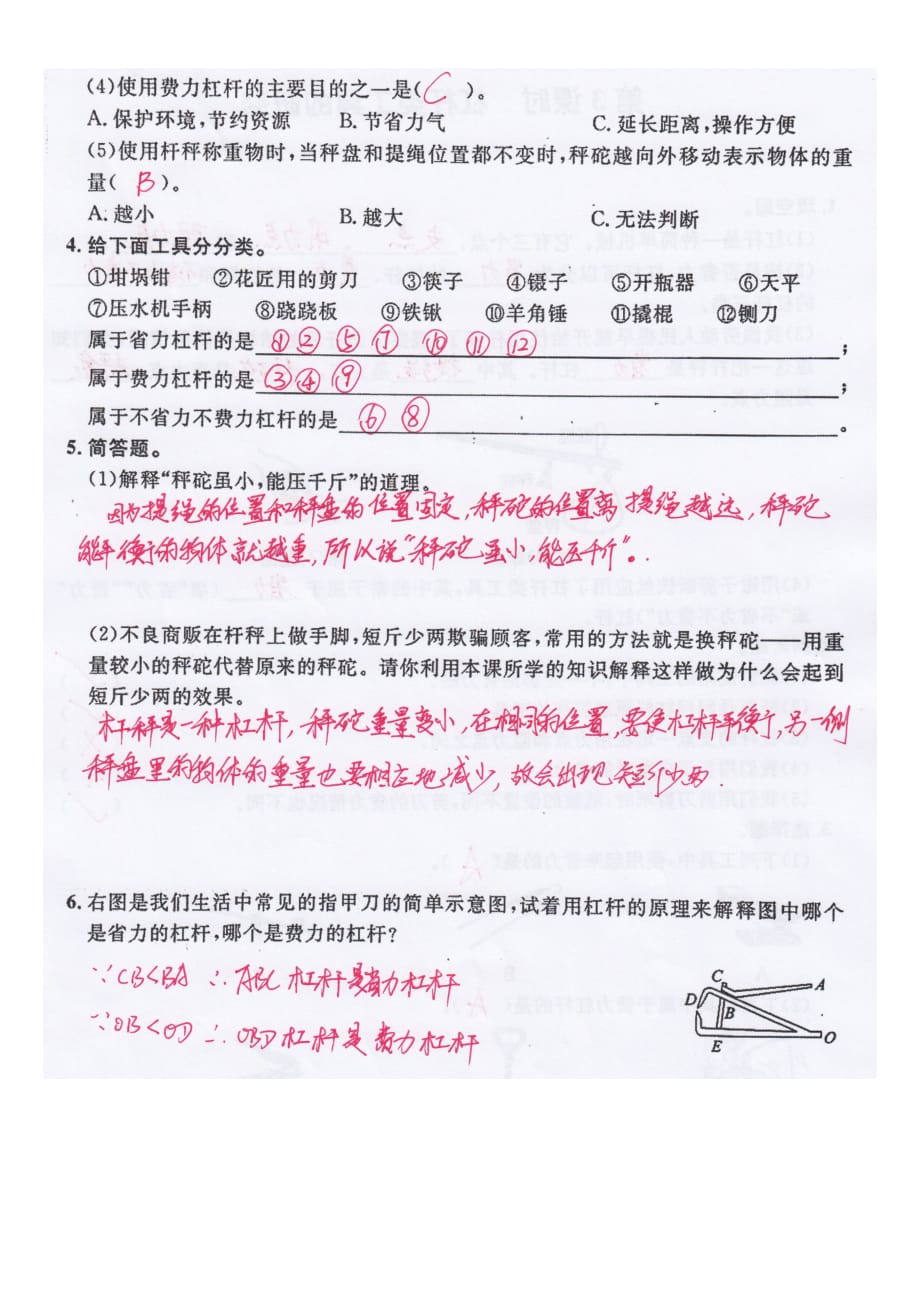 (4)使用费力杠杆的主要目的之一是( C )。
A.保护环境,节约资源 B.节省力气 C.延长距离,操作方便
(5)使用杆秤称重物时,当秤盘和提绳位置都不变时,秤砣越向外移动表示物体的重
量( B )。
A.越小 B.越大 C.无法判断
4.给下面工具分分类。
①坩埚钳 ②花匠用的剪刀 ③筷子 ④镊子 ⑤开瓶器 ⑥天平
⑦压水机手柄 ⑧跷跷板 ⑨铁锹 ⑩羊角锤 ⑪撬棍 ⑫铡刀
属于省力杠杆的是 ①②⑤⑦⑩⑪⑫ ;
属于费力杠杆的是 ③④⑨ ;
属于不省力不费力杠杆的是 ⑥⑧ 。
5.简答题。
(1)解释“秤砣虽小,能压千斤”的道理。
因为提绳的位置和秤盘的位置固定,秤砣的位置离提绳越远,秤砣
能平衡的物体就越重,所以说“秤砣虽小,能压千斤”。
(2)不良商贩在杆秤上做手脚,短斤少两欺骗顾客,常用的方法就是换秤砣——用重
量较小的秤砣代替原来的秤砣。请你利用本课所学的知识解释这样做为什么会起到
短斤少两的效果。
杠秤是一种杠杆,秤砣重量变小,在相同的位置,要使杠杆平衡,另一侧
秤盘里的物体的重量也要相应地减少,故会出现短斤少两.
6.右图是我们生活中常见的指甲刀的简单示意图,试着用杠杆的原理来解释图中哪个
是省力的杠杆,哪个是费力的杠杆?
∵CB<BA ∴ABC杠杆是省力杠杆
∵OB<OD ∴OBD杠杆是费力杠杆
C A
D B
E O